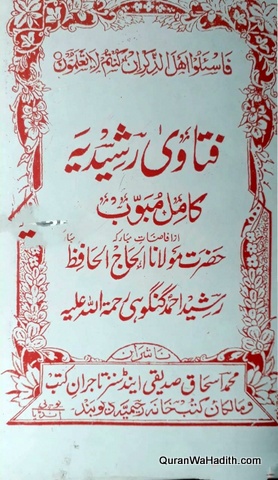 فاسئلوا اهل الذکر ان کنتم لا تعلمون
فتاویٰ رشیدیہ
کامل مبوب
از افاضات مبارکہ
حضرت مولانا الحاج الحافظ
رشید احمد گنگوہی رحمۃ اللہ علیہ
ناشران
محمد اسحاق صدیقی اینڈ سنز تاجران کتب
ومالکان کتب خانہ رحیمیہ دیوبند یو۔پی انڈیا
QuranWaHadith.com